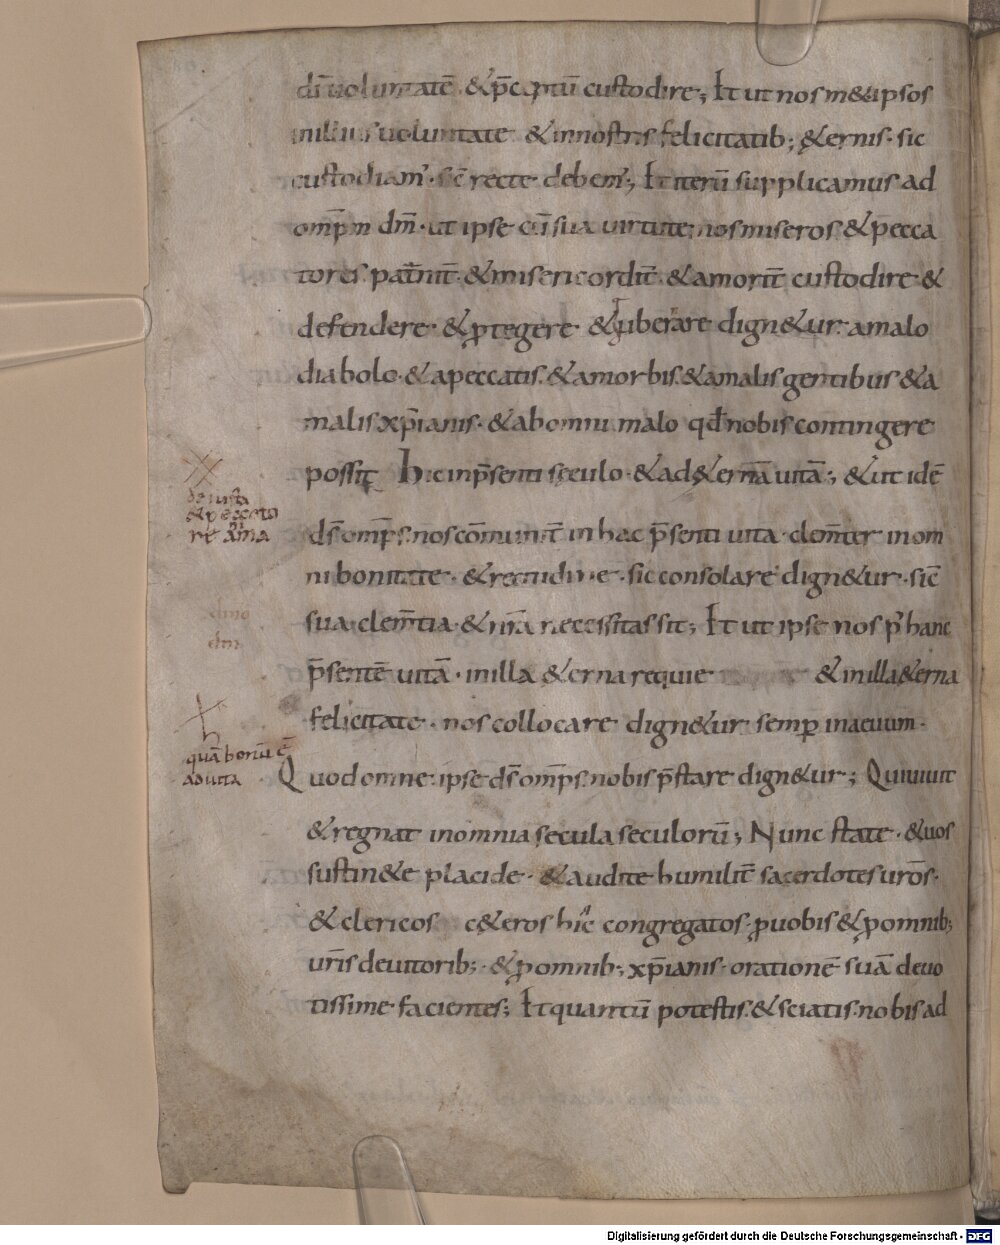 dī uoluntatē & p̄ceptū custodire; Et ut nosm&ipsos
in illius uoluntate & in nostris felicitatib; &ernis· sic
custodiam̄· sic̄ recte debem̄; Et iterū supplicamus ad
omp̄m dm̄· ut ipse cū sua uirtute; nos miseros & pecca
tores pat̄nit̄· & misericordit̄· & amorit̄ custodire &
defendere· & ꝓtegere· & liberare dign&ur· a malo
diabolo· & a peccatis· & a morbis· & a malis gentibus & a
malis xp̄ianis· & ab omni malo qd̄ nobis contingere
possit Hic in p̄senti sęculo· & ad &ernā uitā; & ut idē
de iusta
& peccato
re anima
ds̄ omp̄s· nos cōmunit̄ in hac p̄senti uita· clem̄ter in om
ni bonitate· & rectudine· sic consolare dign&ur· sic̄
dmo
dni
sua clem̄tia· & nr̄a necessitas sit; Et ut ipse nos p' hanc
p̄sentē uitā· in illa &erna requie & in illa &erna
felicitate· nos collocare dign&ur semꝑ in aeuum·
quā bonū ē
ad uita
Quod omne· ipse ds̄ omp̄s· nobis p̄stare dign&ur; Qui uiuit
& regnat in omnia secula seculorū; Nunc state· & uos
sustin&e placide· & audite humilit̄ sacerdotes ur̄os·
& clericos c&eros hic congregatos· ꝓ uobis & ꝓ omnib;
ur̄is deuitorib;· & ꝓ omnib; xp̄ianis· orationē suā deuo
tissime facientes; Et quantū potestis· & sciatis· nobis ad
Digitalisierung gefördert durch die Deutsche Forschungsgemeinschaft - DFG